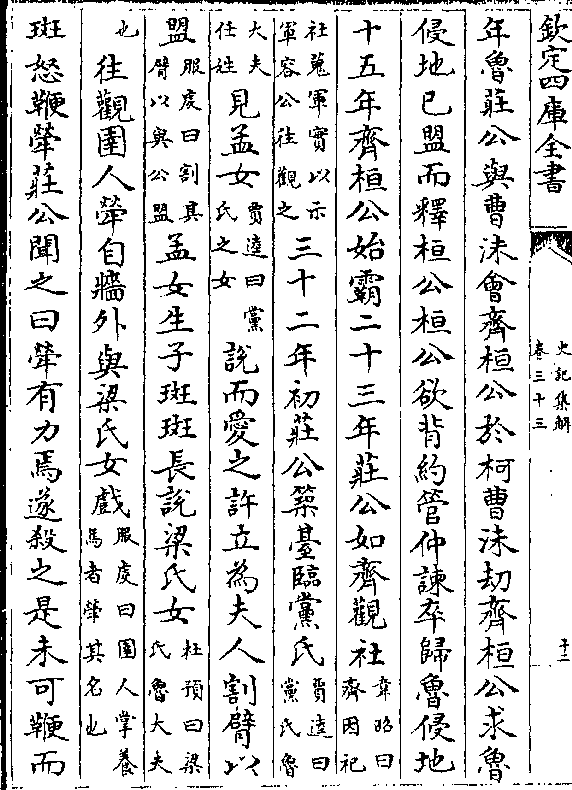 欽定四庫全書
史記集解
卷三十三
十二
年魯莊公與曹沬會齊桓公於柯曹沬劫齊桓公求魯
侵地已盟而釋桓公桓公欲背約管仲諫卒歸魯侵地
十五年齊桓公始霸二十三年莊公如齊觀社韋昭曰齊因祀
社蒐軍實以示軍容公往觀之三十二年初莊公築臺臨黨氏賈逵曰黨氏魯
大夫任姓見孟女賈逵曰黨氏之女說而愛之許立為夫人割臂以
盟服虔曰割其臂以與公盟孟女生子斑斑長說梁氏女杜預曰梁氏魯大夫
也往觀圉人犖自牆外與梁氏女戲服虔曰圉人掌養馬者犖其名也
斑怒鞭犖莊公聞之曰犖有力焉遂殺之是未可鞭而